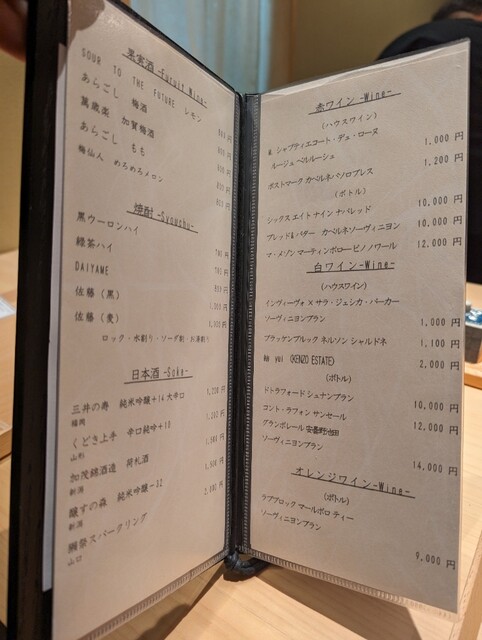 果実酒 -Furuit Wine-
SOUR TO THE FUTURE レモン
あらごし 梅酒
萬歳楽 加賀梅酒
あらごし もも
梅仙人 めろめろメロン
焼酎 -Syouchu-
黒ウーロンハイ
緑茶ハイ
DAIYAME
佐藤（黒）
佐藤（麦）
ロック・水割り・ソーダ割・お湯割り
日本酒 -Sake-
三井の寿 純米吟醸+14 大辛口
福岡
くどき上手 辛口純吟+10
山形
加茂錦酒造 荷札酒
新潟
醸す森 純米吟醸-32
新潟
獺祭スパークリング
山口
赤ワイン -Wine-
（ハウスワイン）
M. シャプティエコート・デュ・ローヌ
ルージュ ベルルーシュ 1,000 円
ポストマーク カベルネパソロブレス 1,200 円
（ボトル）
シックス エイト ナイン ナパレッド 10,000 円
ブレッド& バター カベルネソーヴィニヨン 10,000 円
マ・メゾン マーティンボロー ピノノワール 12,000 円
白ワイン -Wine-
（ハウスワイン）
インヴィーヴォ X サラ・ジェシカ・パーカー
ソーヴィニヨンブラン 1,000 円
ブラッケンブルック ネルソン シャルドネ 1,100 円
結 yui (KENZO ESTATE) 2,000 円
（ボトル）
ドトラフォード シュナンブラン 10,000 円
コント・ラフォン サンセール 12,000 円
グランポレール 安曇野池田
ソーヴィニヨンブラン 14,000 円
オレンジワイン -Wine-
（ボトル）
ラブブロック マールボロ ティー
ソーヴィニヨンブラン 9,000 円